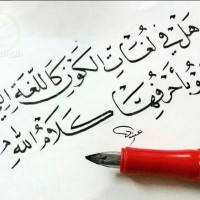 هَل في لُغَاتِ الكَونِ كَاللُّغَةِ
بأَحرُفِهَا كَلَامُ اللهِ